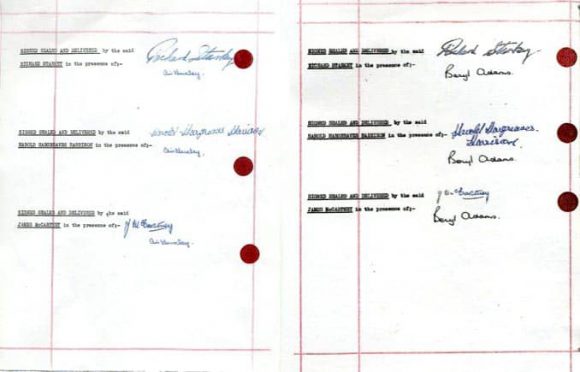 SIGNED SEALED AND DELIVERED by the said
RICHARD STARKEY in the presence of:-
Richard Starkey
SIGNED SEALED AND DELIVERED by the said
HAROLD HARGREAVES HARRISON in the presence of:-
Harold Hargreaves Harrison
SIGNED SEALED AND DELIVERED by the said
JAMES McCARTNEY in the presence of:-
J McCartney
SIGNED SEALED AND DELIVERED by the said
RICHARD STARKEY in the presence of:-
Richard Starkey.
Beryl Adams.
SIGNED SEALED AND DELIVERED by the said
HAROLD HARGREAVES HARRISON in the presence of:-
Harold Hargreaves.
Harrison.
Beryl Adams.
SIGNED SEALED AND DELIVERED by the said
JAMES McCARTNEY in the presence of:-
J McCartney
Beryl Adams.